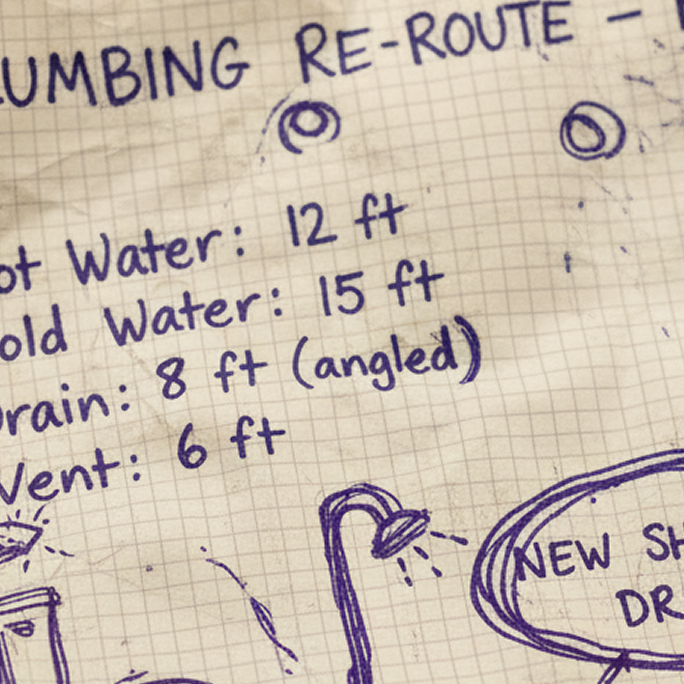 LUMBING RE-ROUTE –
ot Water: 12 ft
old Water: 15 ft
Drain: 8 ft (angled)
Vent: 6 ft
NEW SH
DR